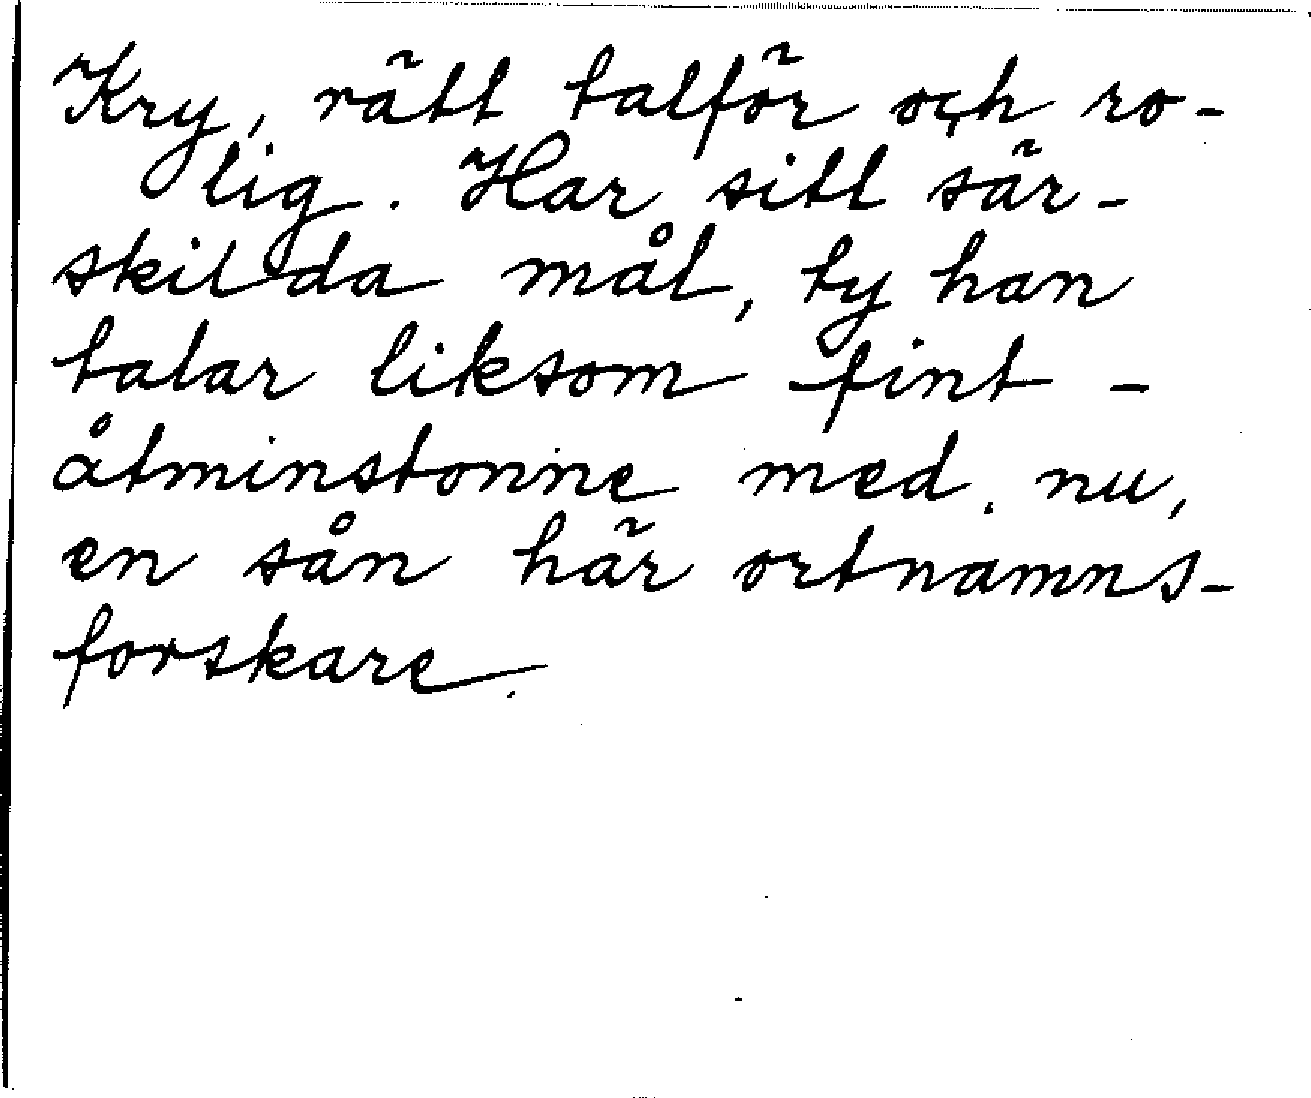 Kry, rätt talför och ro-
lig. Har sitt sär-
skilda mål, ty han
talar liksom fint -
åtminstonne med nu,
en sån här ortnamns-
forskare.